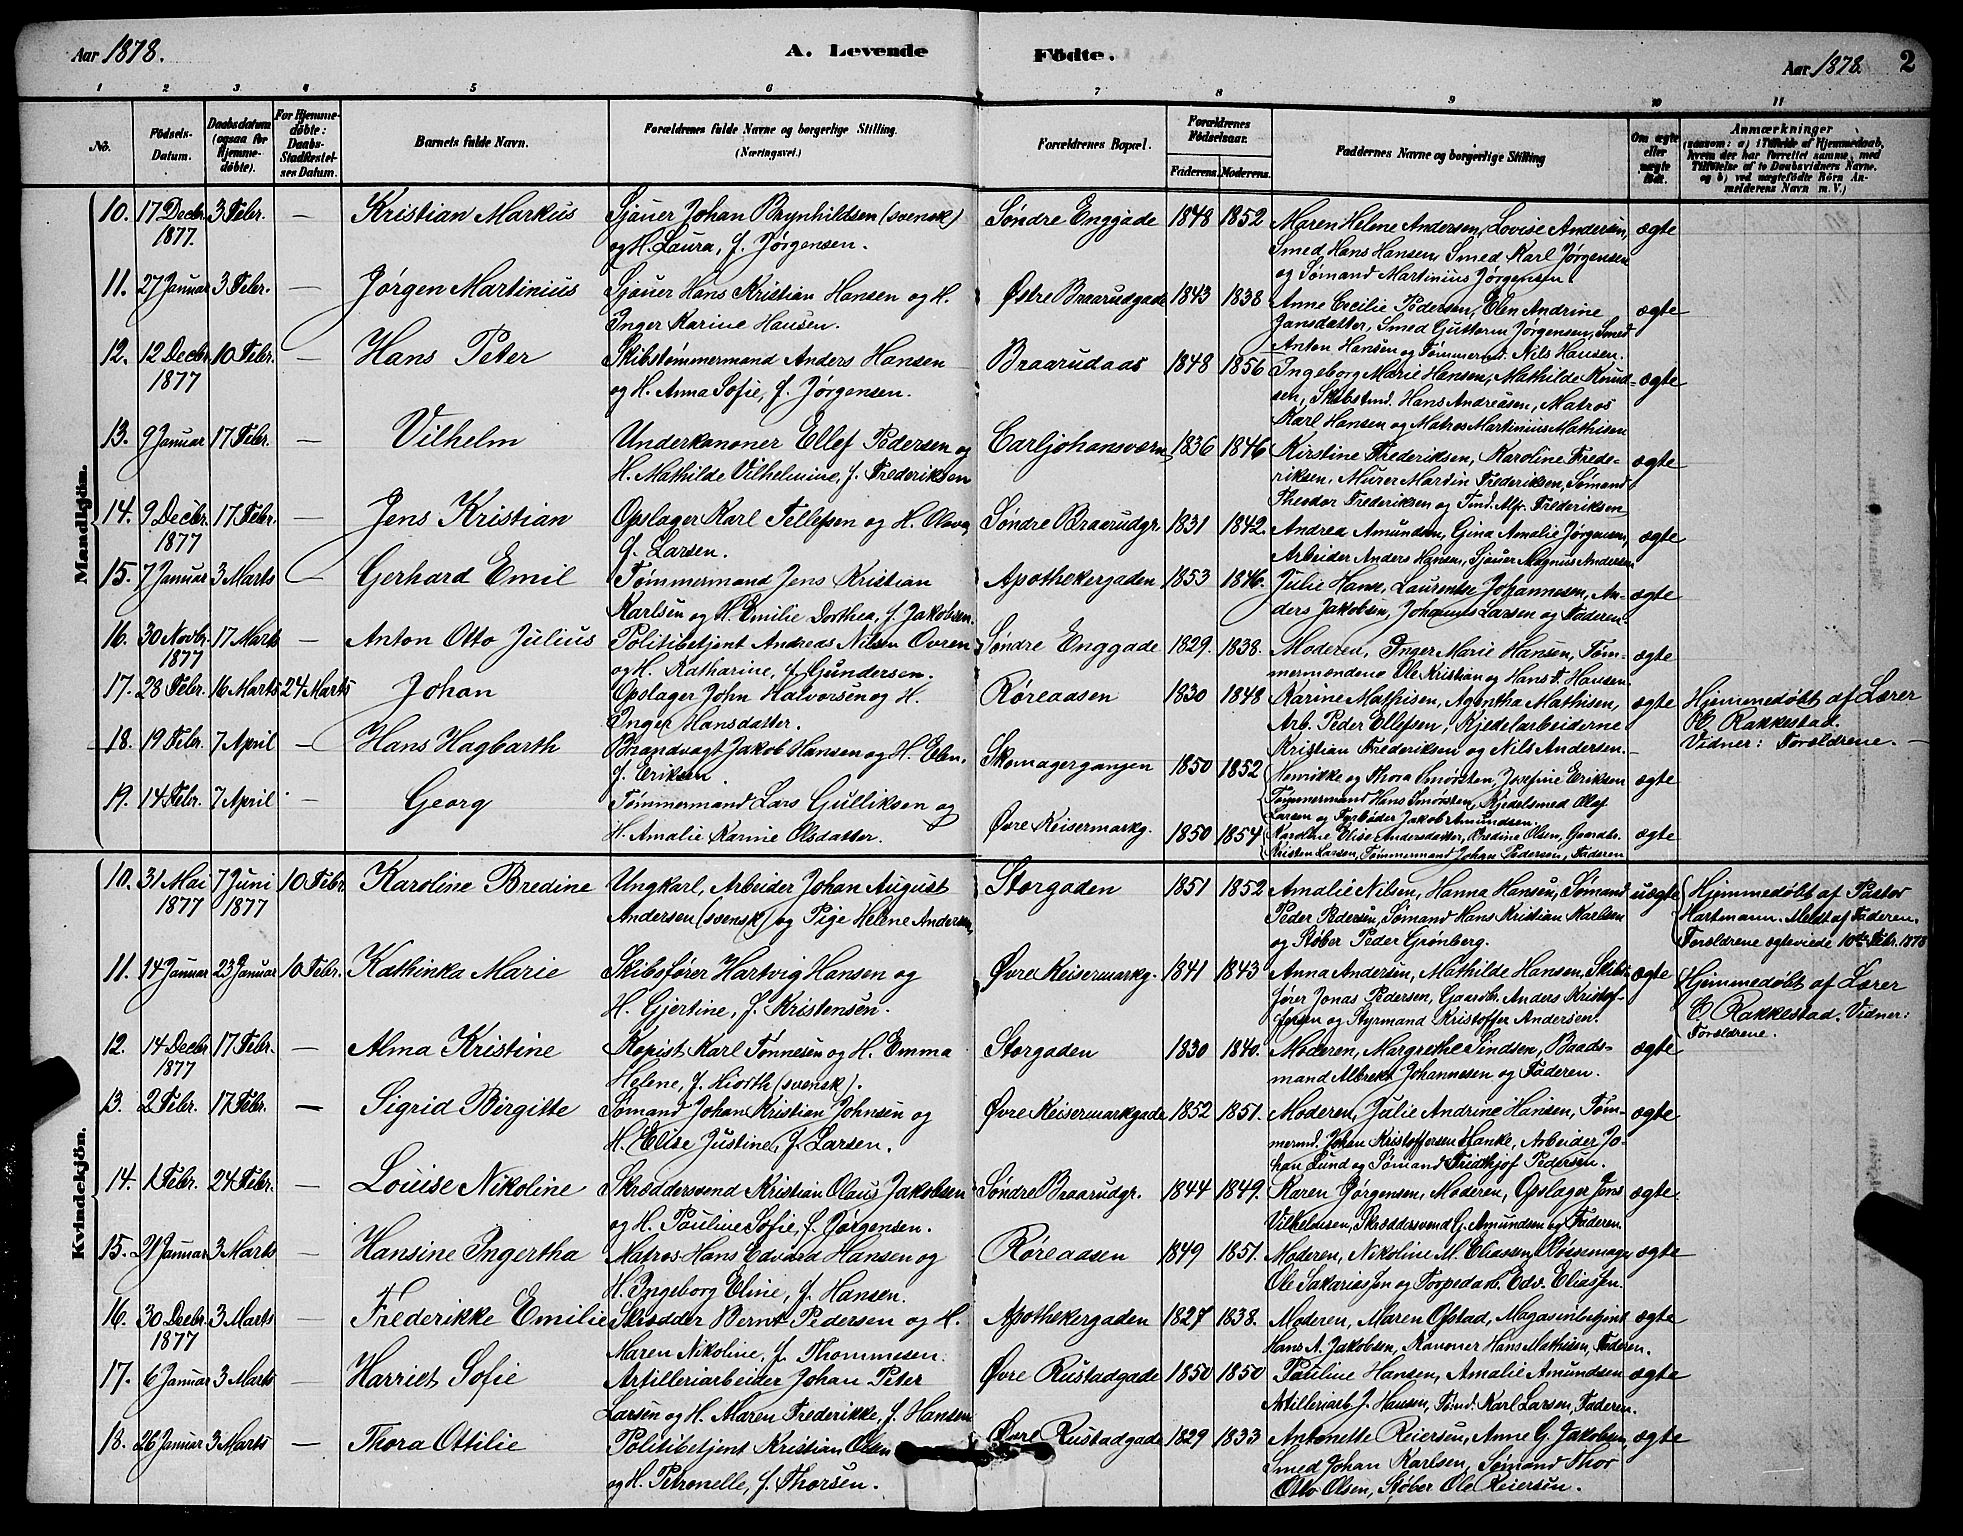 Aar 1878.
A. Levende Födte.
Aar 1878. 2
1 2 3 4 5 6 7 8 9 10 11
No.
Födsels-Datum.
Daabsdatum (ogsaa for Hjemmedöbte).
For Hjemmedöbte: Daabs-Stadfæstelses Datum.
Barnets fulde Navn.
Forældrenes fulde Navne og borgerlige Stilling. (Næringsvei.)
Forældrenes Bopæl.
Forældrenes Födselsaar.
Faderens. Moderens.
Faddernes Navne og borgerlige Stilling
Om ægte eller uægte født.
Anmærkninger
(saasom: a) i Tilfælde af Hjemmedaab, hvem der har forrettet samme, med Tilföielse af to Daabsvidners Navne, og b) ved uægtefödte Börn Anmelderens Navn m. V.)
Mandkjön.
10. 17 Decbr. 1877. 3 Febr. — Kristian Markus
Sjauer Johan Brynhildsen (svensk)
og H. Laura, f. Jørgensen.
Søndre Enggade 1848 1852
Maren Helene Andersen, Lovise Andersen,
Smed Hans Hansen, Smed Karl Jørgensen
og Sømand Martinius Jørgensen.
ægte
11. 27 Januar 3 Febr. — Jørgen Martinius
Sjauer Hans Kristian Hansen og H.
Inger Karine Hansen.
Østre Braarudgade 1843 1838
Anne Cecilie Pedersen, Elen Andrine
Jansdatter, Smed Guttorm Jørgensen, Smed
Anton Hansen og Tømmermd. Nils Hansen.
ægte
12. 12 Decbr. 1877 10 Febr. — Hans Peter
Skibstømmermand Anders Hansen
og H. Anna Sofie, f. Jørgensen.
Braarudaas 1848 1856
Ingeborg Marie Hansen, Mathilde Knud-
sen, Skibstmd. Hans Andreasen, Matros
Karl Hansen og Matros Martinius Mathisen
ægte
13. 9 Januar 17 Febr. — Vilhelm
Underkanoner Ellef Pedersen og
H. Mathilde Vilhelmine, f. Frederiksen
Carljohansværn 1836 1846
Kirstine Frederiksen, Karoline Frede-
riksen, Murer Martin Frederiksen, Sømand
Theodor Frederiksen og Tmd. Alfr. Frederiksen
ægte
14. 9 Decbr. 1877 17 Febr. — Jens Kristian
Opslager Karl Tellefsen og H. Olava,
f. Larsen.
Søndre Braarudgr. 1831 1842.
Andrea Amundsen, Gina Amalie Jørgensen,
Arbeider Anders Hansen, Sjauer Magnus Andersen
ægte
15. 7 Januar 3 Marts — Gerhard Emil
Tømmermand Jens Kristian
Karlsen og H. Emilie Dorthea, f. Jakobsen.
Apothekergaden 1853 1846.
Julie Hank, Laurentse Johannesen, An-
ders Jakobsen, Johannes Larsen og Faderen.
ægte
16. 30 Novbr. 1877 17 Marts — Anton Otto Julius
Politibetjent Andreas Nilsen Ovren
og H. Katharine, f. Gundersen.
Søndre Enggade 1829. 1838.
Moderen, Inger Marie Hansen, Tøm-
mermændene Ole Kristian og Hans F. Hansen.
ægte
17. 28 Febr. 16 Marts 24 Marts Johan
Opslager John Halvorsen og H.
Inger Hansdatter.
Røreaasen 1830 1848
Karine Mathisen, Agentha Mathisen,
Arb. Peder Ellefsen, Kjedelarbeiderne
Kristian Frederiksen og Nils Andersen.
ægte
Hjemmedøbt af Lærer
E. Rakkestad.
Vidner: Forældrene. —
18. 19 Febr. 7 April — Hans Hagbarth
Brandvagt Jakob Hansen og H. Elen,
f. Eriksen.
Skomagergangen 1850 1852
Henrikke og Thora Smørsten, Josefine Eriksen
Tømmermand Hans Smørsten, Kjedelsmed Ollef
Larsen og Fyrbøder Jakob Amundsen.
ægte
19. 14 Febr. 7 April — Georg
Tømmermand Lars Gulliksen og
H. Amalie Karine Olsdatter.
Øvre Keisermarkg. 1850 1854
Karoline Elise Andersdatter, Bredine Olsen, Gaardbr.
Kristen Larsen, Tømmermand Johan Pedersen, Faderen
ægte
Kvindekjön.
10. 31 Mai 1877 7 Juni 1877 10 Febr. Karoline Bredine
Ungkarl, Arbeider Johan August
Andersen (svensk) og Pige Helene Andersen,
Storgaden 1851 1852
Amalie Nilsen, Hanna Hansen, Sømand
Peder Pedersen, Sømand Hans Kristian Karlsen
og Støber Peder Grønberg.
uægte
Hjemmedøbt af Pastor
Hartmann. Meldt af Faderen.
Forældrene ægteviede 10de Febr. 1878
11. 14 Januar 23 Januar 10 Febr. Kathinka Marie
Skibsfører Hartvig Hansen og
H. Gjertine, f. Kristensen.
Øvre Keisermarkg. 1841 1843
Anna Andersen, Mathilde Hansen, Skibs-
fører Jonas Pedersen, Gaardbr. Anders Kristof-
fersen og Styrmand Kristoffer Andersen.
ægte
Hjemmedøbt af Lærer
E. Rakkestad. Vidner:
Forældrene.
12. 14 Decbr. 1877 17 Febr. — Alma Kristine
Kopist Karl Tønnesen og H. Emma
Helene, f. Hiorth (svensk).
Storgaden 1830 1840.
Moderen, Margrethe Sindsen, Baads-
mand Albrekt Johannesen og Faderen.
ægte
13. 2 Febr. 17 Febr. — Sigrid Birgitte
Sømand Johan Kristian Johnsen og
H. Elise Justine, f. Larsen.
Øvre Keisermarkgade 1852 1851.
Moderen, Julie Andrine Hansen, Tøm-
mermd. Johan Kristoffersen Hanke, Arbeider Jo-
han Lund og Sømand Fridthjof Pedersen.
ægte
14. 1 Febr. 24 Febr. — Louise Nikoline
Skræddersvend Kristian Olaus Jakobsen
og H. Pauline Sofie, f. Jørgensen.
Søndre Braarudgr. 1844 1849.
Karen Jørgensen, Moderen, Opslager Jens
Vilhelmsen, Skræddersvend G. Amundsen og Faderen.
ægte.
15. 21 Januar 3 Marts — Hansine Ingertha
Matros Hans Edvard Hansen og
H. Ingeborg Eline, f. Hansen.
Røreaasen 1849 1851.
Moderen, Nikoline M. Eliassen, Bøssemager
Ole Sakariassen og Torpedoarb. Edv. Eliassen.
ægte
16. 30 Decbr. 1877 3 Marts — Frederikke Emilie
Skrædder Bernt Pedersen og H.
Maren Nikoline, f. Thommesen.
Apothekergaden 1827 1838.
Moderen, Maren Ofstad, Magasinbetjent
Hans A. Jakobsen, Kanoner Hans Mathisen, Faderen.
ægte
17. 6 Januar 3 Marts — Harriet Sofie
Artilleriarbeider Johan Peter
Larsen og H. Maren Frederikke, f. Hansen
Øvre Rustadgade 1850 1850
Pauline Hansen, Amalie Amundsen
Artilleriarb. J. Hansen, Tømd. Karl Larsen, Faderen.
ægte
18. 26 Januar 3 Marts — Thora Ottilie
Politibetjent Kristian Olsen
og H. Petronelle, f. Thorsen.
Øvre Rustadgade 1829 1833
Antonette Reiersen, Anne G. Jakobsen,
Smed Johan Karlsen, Sømand Thor
Otto Olsen, Støber Ole Reiersen.
ægte